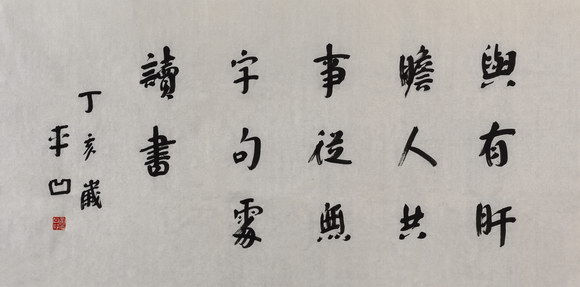 與有肝
膽人共
事從無
字句處
讀書
丁亥歲
平凹